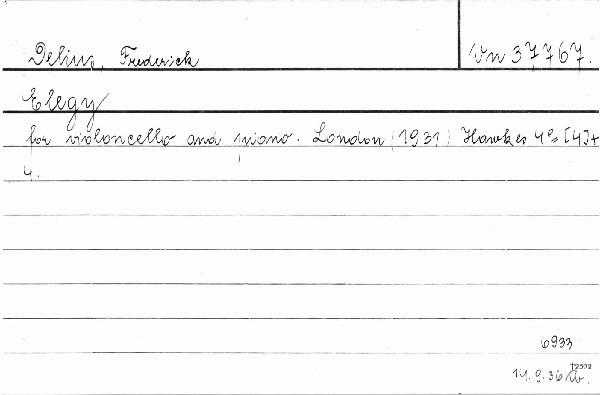 Delius, Frederick
Vn 37767.
Elegy
for violoncello and piano. London (1931) Hawkes 4° [4]+
4.
6933
12502
14.9.36